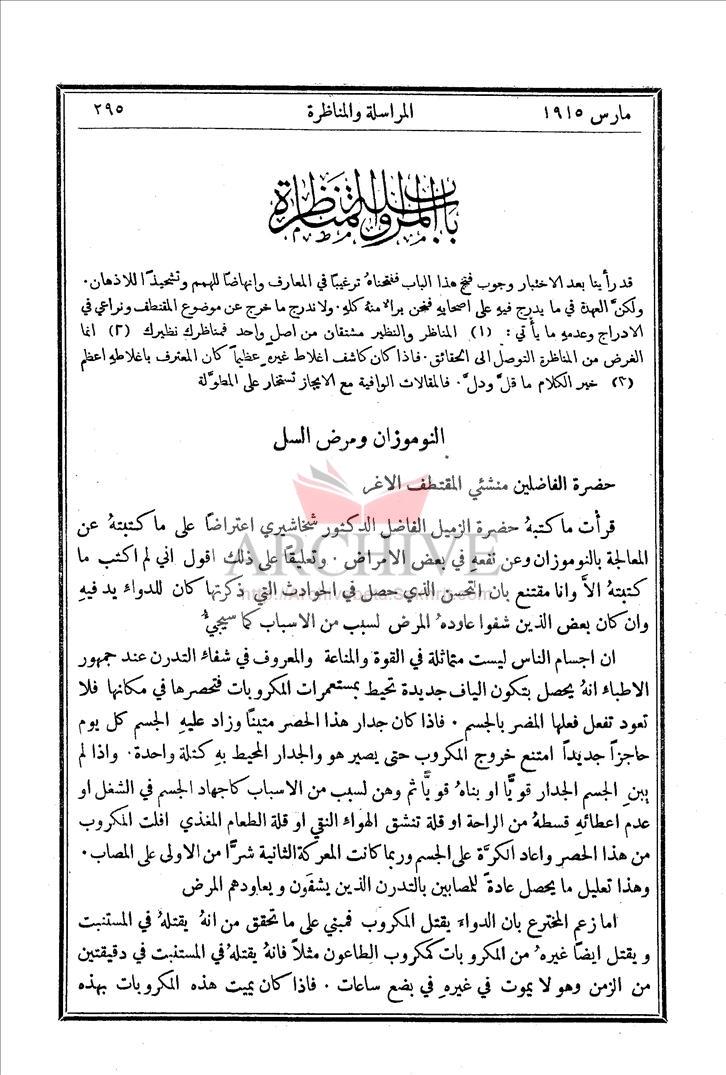 مارس ١٩١٥ المراسلة والمناظرة ٢٩٥
باب المراسلة والمناظرة
قد رأينا بعد الاختبار وجوب فتح هذا الباب ففتحناهُ ترغيبًا في المعارف وانهاضًا للهمم وتشحيذًا للاذهان .
ولكنَّ العهدة في ما يدرج فيهِ على اصحابهِ فنحن برالا منهُ كلهِ . ولا ندرج ما خرج عن موضوع المقتطف ونراعي في
الادراج وعدمهِ ما يأتي : (١) المناظر والنظير مشتقان من اصل واحد فمناظرك نظيرك (٢) انما
الغرض من المناظرة التوصل الى الحقائق . فاذا كان كاشف اغلاط غيرهِ عظيمًا كان المعترف باغلاطهِ اعظم
(٣) خير الكلام ما قلَّ ودلَّ . فالمقالات الوافية مع الايجاز تستخار على المطوَّلة
النوموزان ومرض السل
حضرة الفاضلين منشئي المقتطف الاغر
ARCHIVE
قرأت ما كتبهُ حضرة الزميل الفاضل الدكتور شخاشيري اعتراضًا على ما كتبتهُ عن
المعالجة بالنوموزان وعن نفعهِ في بعض الامراض . وتعليقًا على ذلك اقول اني لم اكتب ما
كتبتهُ الاَّ وانا مقتنع بان التحسن الذي حصل في الحوادث التي ذكرتها كان للدواء يد فيهِ
وان كان بعض الذين شفوا عاودهُ المرض لسبب من الاسباب كما سيجيءُ
ان اجسام الناس ليست متماثلة في القوة والمناعة والمعروف في شفاء التدرن عند جمهور
الاطباء انهُ يحصل بتكون الياف جديدة تحيط بمستعمرات المكروبات فتحصرها في مكانها فلا
تعود تفعل فعلها المضر بالجسم . فاذا كان جدار هذا الحصر متينًا وزاد عليهِ الجسم كل يوم
حاجزًا جديدًا امتنع خروج المكروب حتى يصير هو والجدار المحيط بهِ كتلة واحدة . واذا لم
يبنِ الجسم الجدار قويًّا او بناهُ قويًّا ثم وهن لسبب من الاسباب كاجهاد الجسم في الشغل او
عدم اعطائهِ قسطهُ من الراحة او قلة تنشق الهواء النقي او قلة الطعام المغذي افلت المكروب
من هذا الحصر واعاد الكرَّة على الجسم وربما كانت المعركة الثانية شرًّا من الاولى على المصاب .
وهذا تعليل ما يحصل عادةً للمصابين بالتدرن الذين يشفون ويعاودهم المرض
اما زعم المخترع بان الدواء يقتل المكروب فمبني على ما تحقق من انهُ يقتلهُ في المستنبت
ويقتل ايضًا غيرهُ من المكروبات كمكروب الطاعون مثلاً فانهُ يقتلهُ في المستنبت في دقيقتين
من الزمن وهو لا يموت في غيرهِ في بضع ساعات . فاذا كان يميت هذه المكروبات بهذه